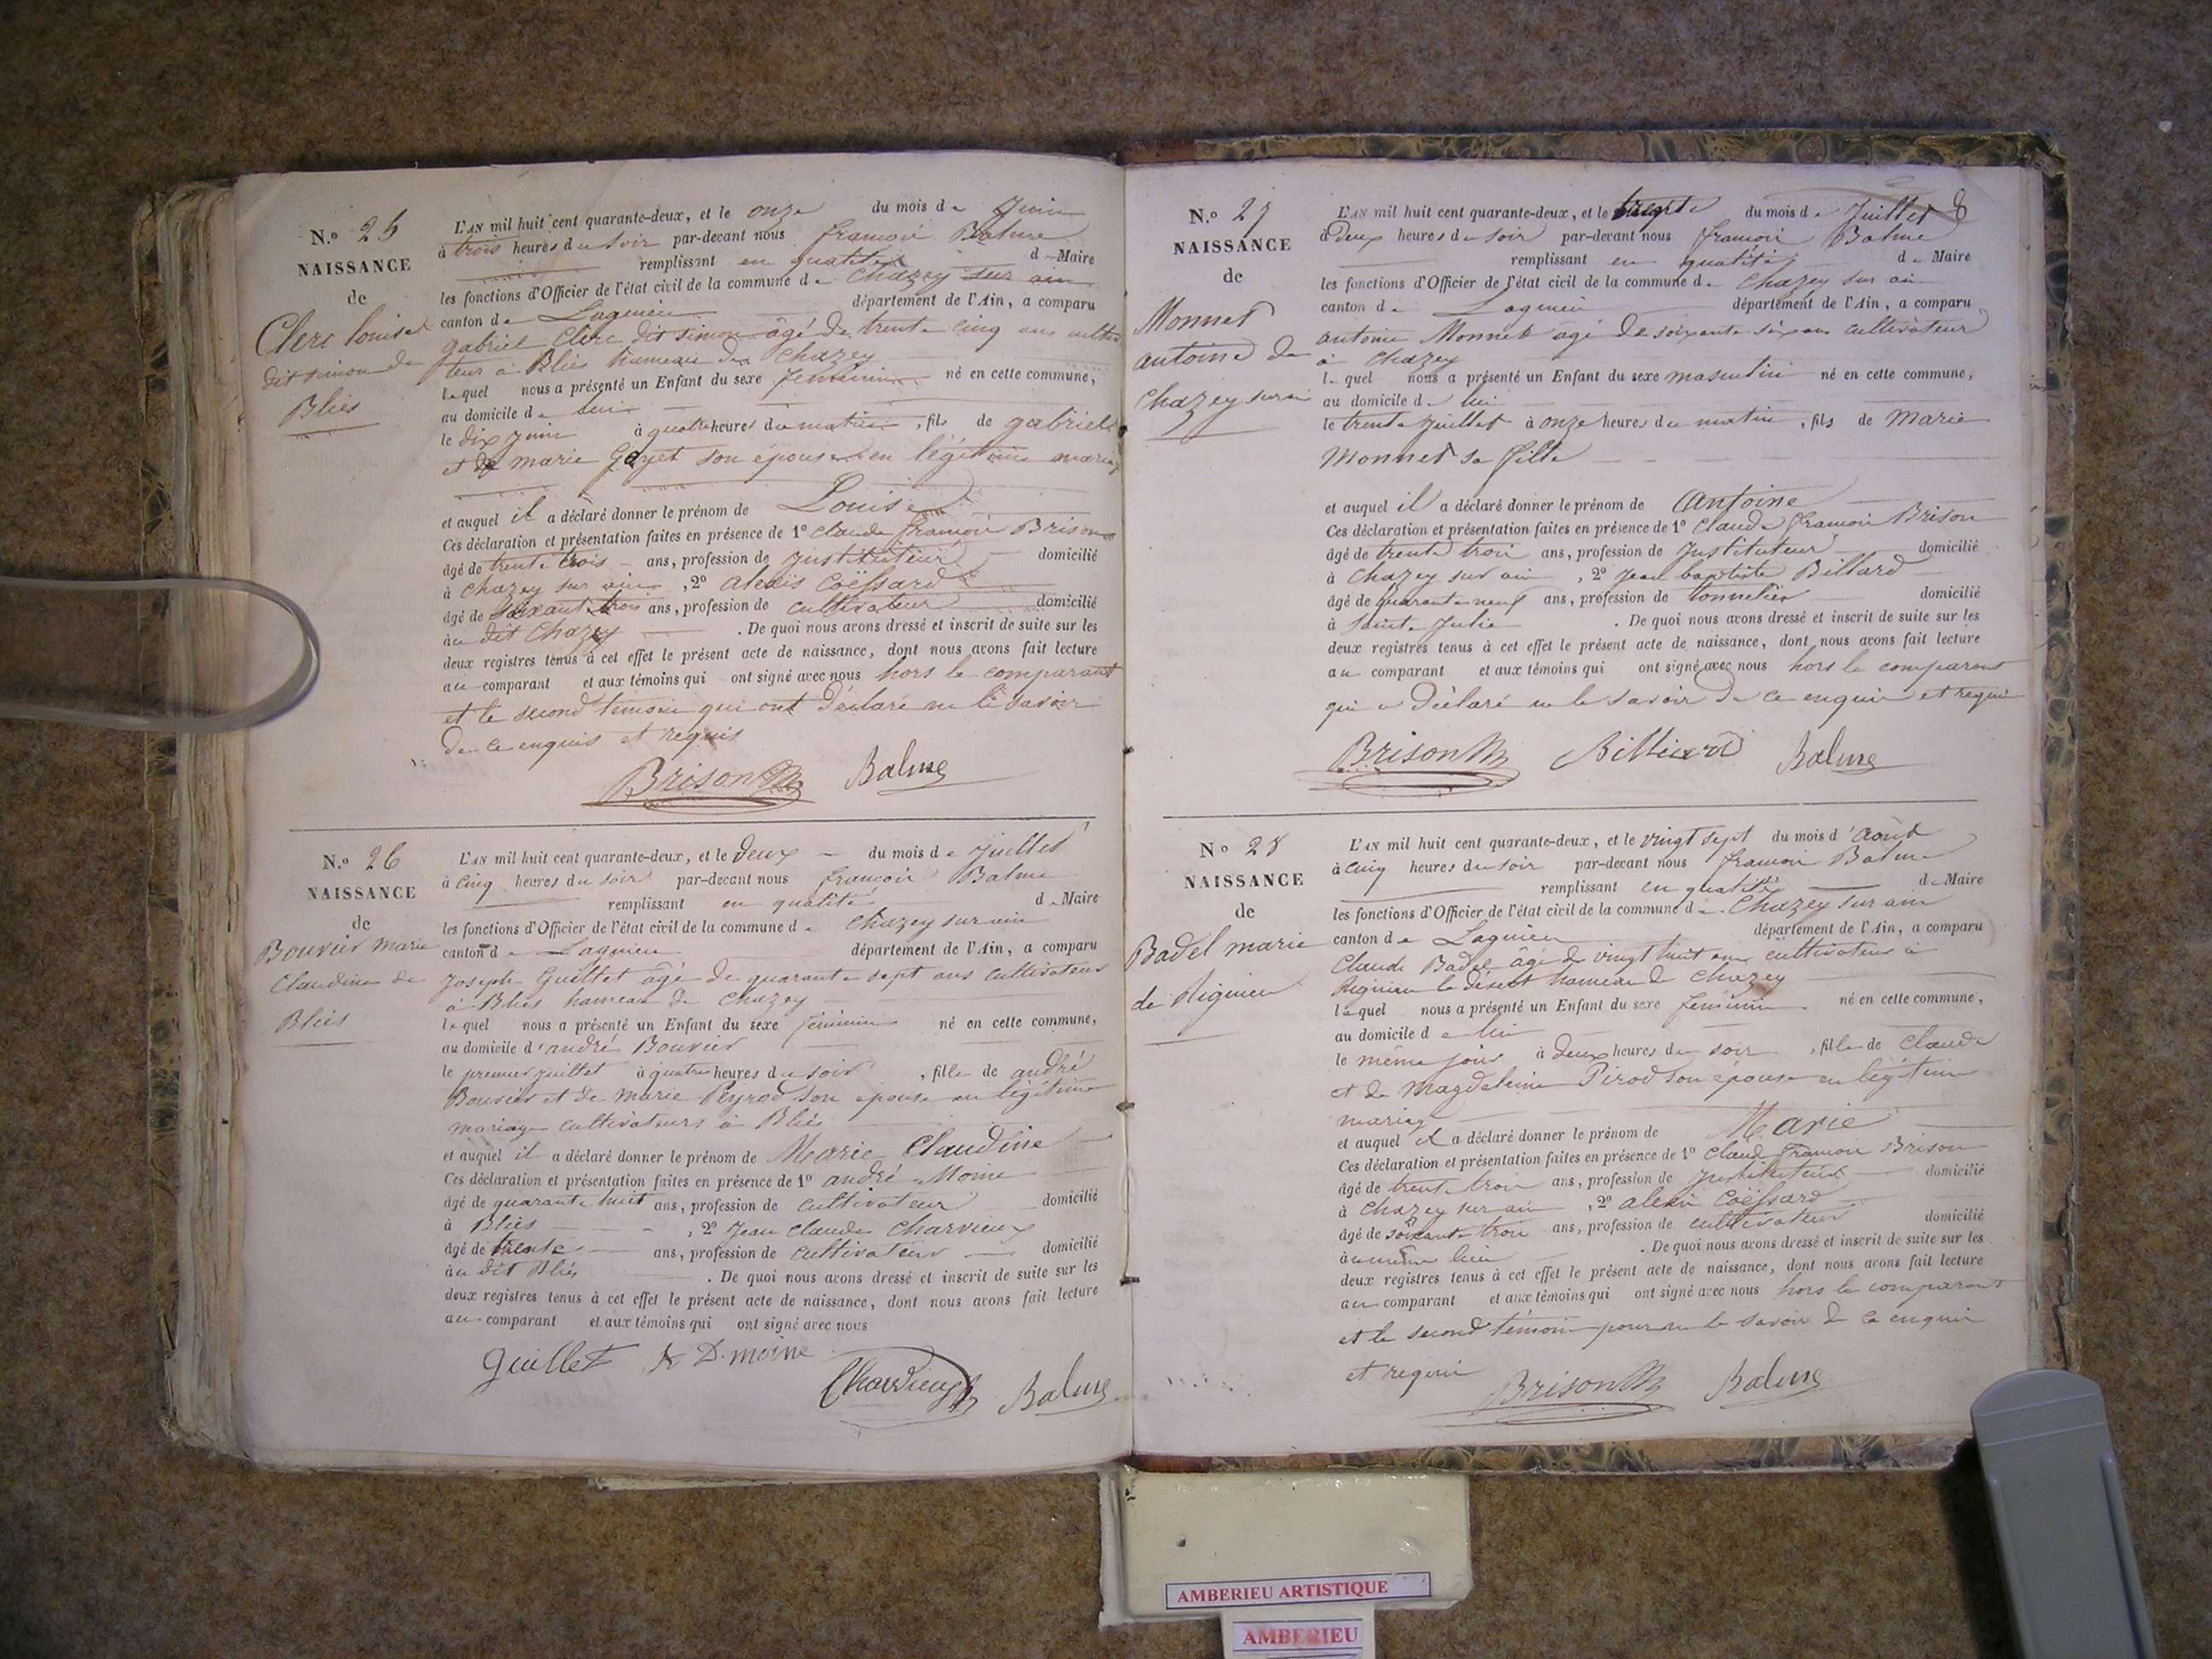 N.o 25
NAISSANCE
de
Clerc louise
dit simon de
Bliès
L'AN mil huit cent quarante-deux, et le onze du mois de Juin
à trois heures du soir par-devant nous françois Balme
remplissant en qualité de Maire
les fonctions d'Officier de l'état civil de la commune de Chazey sur ain
canton de Lagnieu département de l'Ain, a comparu
gabriel Clerc dit simon âgé de trente cinq ans cultiva
teur à Bliès hameau de Chazey
lequel nous a présenté un Enfant du sexe féminin né en cette commune,
au domicile de lui
le dix juin à quatre heures du matin, fils de gabriel
et de marie son épouse en légitime mariage
et auquel il a déclaré donner le prénom de Louise
Ces déclaration et présentation faites en présence de 1o Claude françois Brison
âgé de trente trois ans, profession de instituteur domicilié
à Chazey sur ain, 2o alexis Coëssard
âgé de soixante trois ans, profession de cultivateur domicilié
au dit Chazey. De quoi nous avons dressé et inscrit de suite sur les
deux registres tenus à cet effet le présent acte de naissance, dont nous avons fait lecture
au comparant et aux témoins qui ont signé avec nous hors le comparant
et le second témoin qui ont déclaré ne le savoir
de ce enquis et requis
Brison Balme
N.o 26
NAISSANCE
de
Bouvier marie
Claudine de
Bliès
L'AN mil huit cent quarante-deux, et le deux du mois de juillet
à cinq heures du soir par-devant nous françois Balme
remplissant en qualité de Maire
les fonctions d'Officier de l'état civil de la commune de Chazey sur ain
canton de Lagnieu département de l'Ain, a comparu
Joseph Guillet âgé de quarante sept ans cultivateur
à Bliès hameau de Chazey
lequel nous a présenté un Enfant du sexe féminin né en cette commune,
au domicile d'andré Bouvier
le premier juillet à quatre heures du soir, fille de andré
Bouvier et de marie Peyrod son épouse en légitime
mariage cultivateurs à Bliès
et auquel il a déclaré donner le prénom de Marie Claudine
Ces déclaration et présentation faites en présence de 1o andré Moine
âgé de quarante huit ans, profession de cultivateur domicilié
à Bliès, 2o Jean Claude Charvieux
âgé de trente ans, profession de cultivateur domicilié
au dit Bliès. De quoi nous avons dressé et inscrit de suite sur les
deux registres tenus à cet effet le présent acte de naissance, dont nous avons fait lecture
au comparant et aux témoins qui ont signé avec nous
Guillet moine
Charvieux Balme
8
N.o 27
NAISSANCE
de
Monnet
antoine de
Chazey sur ain
L'AN mil huit cent quarante-deux, et le trente du mois de Juillet
à deux heures du soir par-devant nous françois Balme
remplissant en qualité de Maire
les fonctions d'Officier de l'état civil de la commune de Chazey sur ain
canton de Lagnieu département de l'Ain, a comparu
antoine Monnet âgé de soixante six ans cultivateur
à Chazey
lequel nous a présenté un Enfant du sexe masculin né en cette commune,
au domicile de lui
le trente juillet à onze heures du matin, fils de Marie
Monnet sa fille
et auquel il a déclaré donner le prénom de Antoine
Ces déclaration et présentation faites en présence de 1o Claude françois Brison
âgé de trente trois ans, profession de Instituteur domicilié
à Chazey sur ain, 2o Jean baptiste Billard
âgé de quarante neuf ans, profession de tonnelier domicilié
à Sainte Julie. De quoi nous avons dressé et inscrit de suite sur les
deux registres tenus à cet effet le présent acte de naissance, dont nous avons fait lecture
au comparant et aux témoins qui ont signé avec nous hors le comparant
qui a déclaré ne le savoir de ce enquis et requis
Brison Billiard Balme
No 28
NAISSANCE
de
Badel marie
de Rignieu
L'AN mil huit cent quarante-deux, et le vingt sept du mois d'août
à cinq heures du soir par-devant nous françois Balme
remplissant en qualité de Maire
les fonctions d'Officier de l'état civil de la commune de Chazey sur ain
canton de Lagnieu département de l'Ain, a comparu
Claude Badel âgé de vingt huit ans cultivateur à
Rignieu le désert hameau de Chazey
lequel nous a présenté un Enfant du sexe féminin né en cette commune,
au domicile de lui
le même jour à deux heures du soir, fille de Claude
et de Magdeleine Pirod son épouse en légitime
mariage
et auquel il a déclaré donner le prénom de Marie
Ces déclaration et présentation faites en présence de 1o Claude françois Brison
âgé de trente trois ans, profession de Instituteur domicilié
à Chazey sur ain, 2o alexis Coëssard
âgé de soixante trois ans, profession de cultivateur domicilié
au même lieu. De quoi nous avons dressé et inscrit de suite sur les
deux registres tenus à cet effet le présent acte de naissance, dont nous avons fait lecture
au comparant et aux témoins qui ont signé avec nous hors le comparant
et le second témoin pour ne le savoir de ce enquis
et requis
Brison Balme
AMBERIEU ARTISTIQUE
AMBERIEU